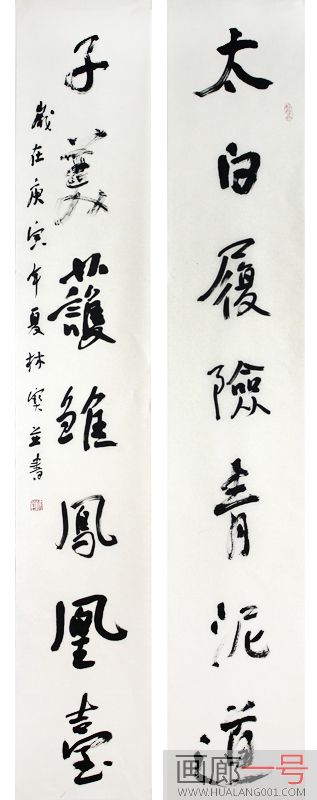 太白履險青泥道
子美護雛鳳凰臺
歲在庚寅年夏林並書
画廊一号
WWW.HUALANG001.COM